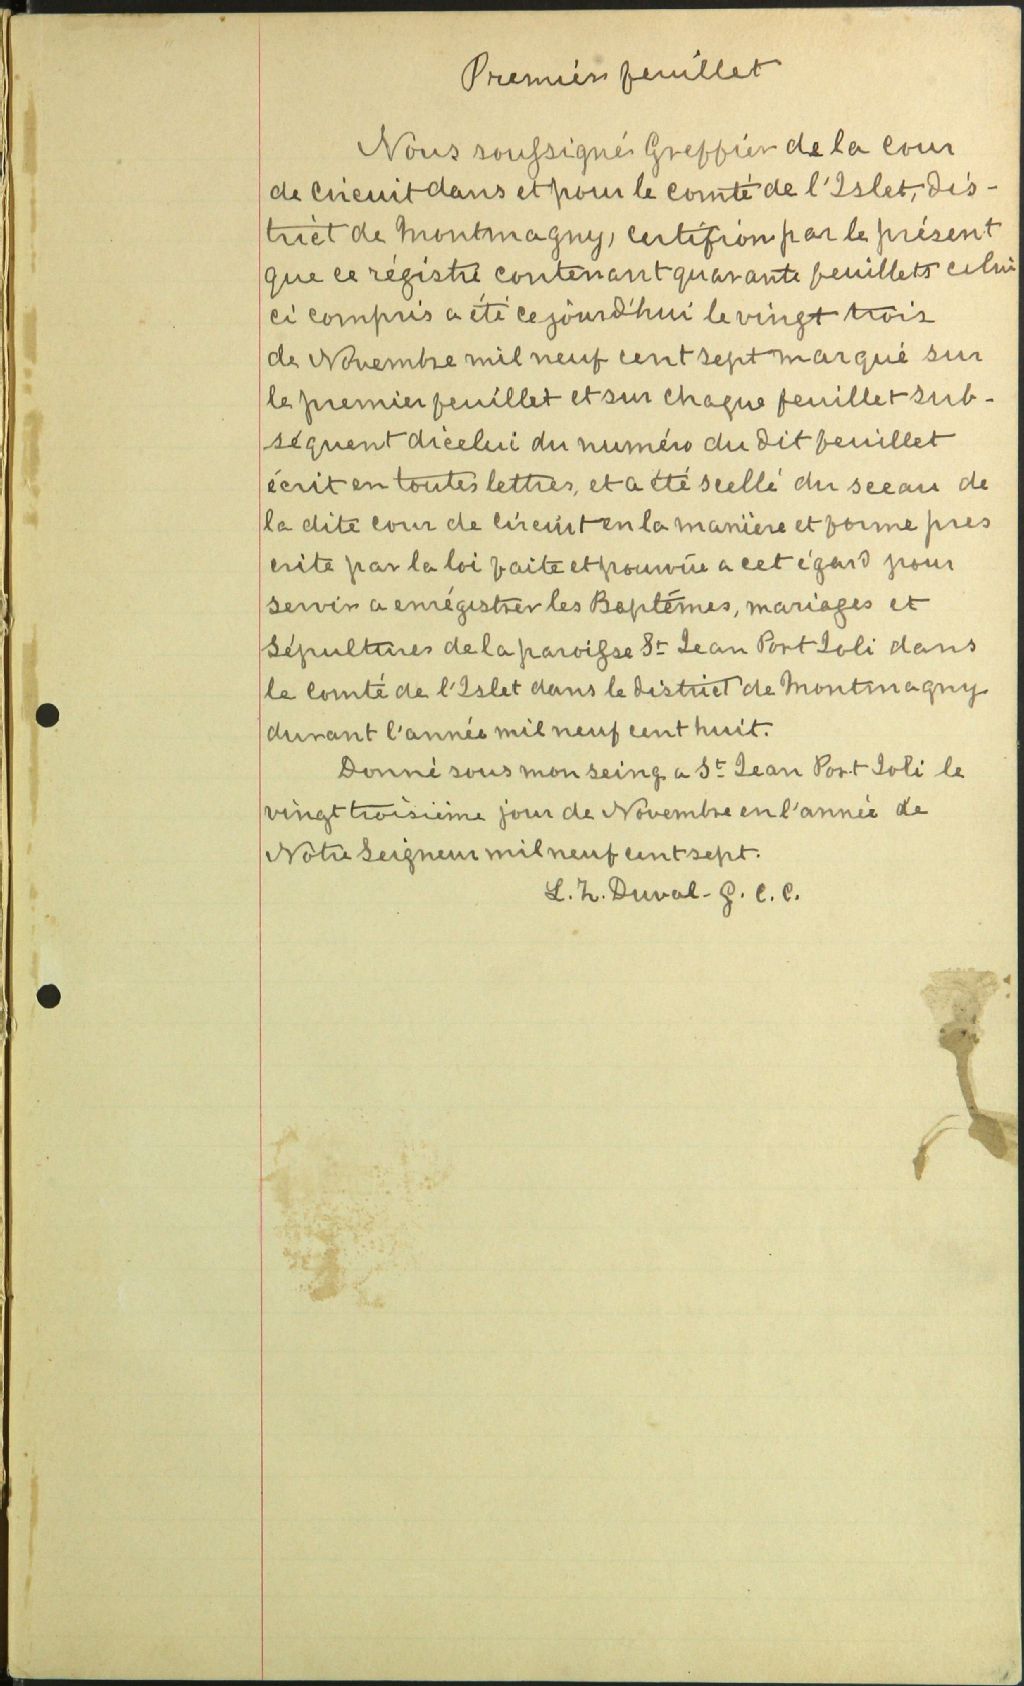 Premier feuillet
Nous soussigné Greffier de la cour
de Circuit dans et pour le comté de l'Islet, dis-
trict de Montmagny, certifion par le présent
que ce régistre contenant quarante feuillets celui
ci compris a été cejourd'hui le vingt trois
de Novembre mil neuf cent sept marqué sur
le premier feuillet et sur chaque feuillet sub-
séquent dicelui du numéro du dit feuillet
écrit en toutes lettres, et a été scellé du sceau de
la dite cour de Circuit en la manière et forme pres
crite par la loi faite et pourvue a cet égard pour
servir a enrégistrer les Baptêmes, mariages et
Sépultures de la paroisse St Jean Port Joli dans
le Comté de l'Islet dans le District de Montmagny
durant l'année mil neuf cent huit.
Donné sous mon seing a St Jean Port Joli le
vingt troisième jour de Novembre en l'année de
Notre Seigneur mil neuf cent sept.
L. Z. Duval - G. C. C.